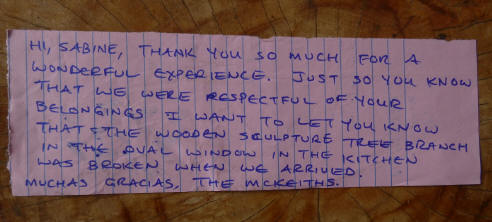 HI, SABINE, THANK YOU SO MUCH FOR A
WONDERFUL EXPERIENCE. JUST SO YOU KNOW
THAT WE WERE RESPECTFUL OF YOUR
BELONGINGS I WANT TO LET YOU KNOW
THAT THE WOODEN SCULPTURE TREE BRANCH
IN THE OVAL WINDOW IN THE KITCHEN
WAS BROKEN WHEN WE ARRIVED.
MUCHAS GRACIAS, THE MCKEITHS.